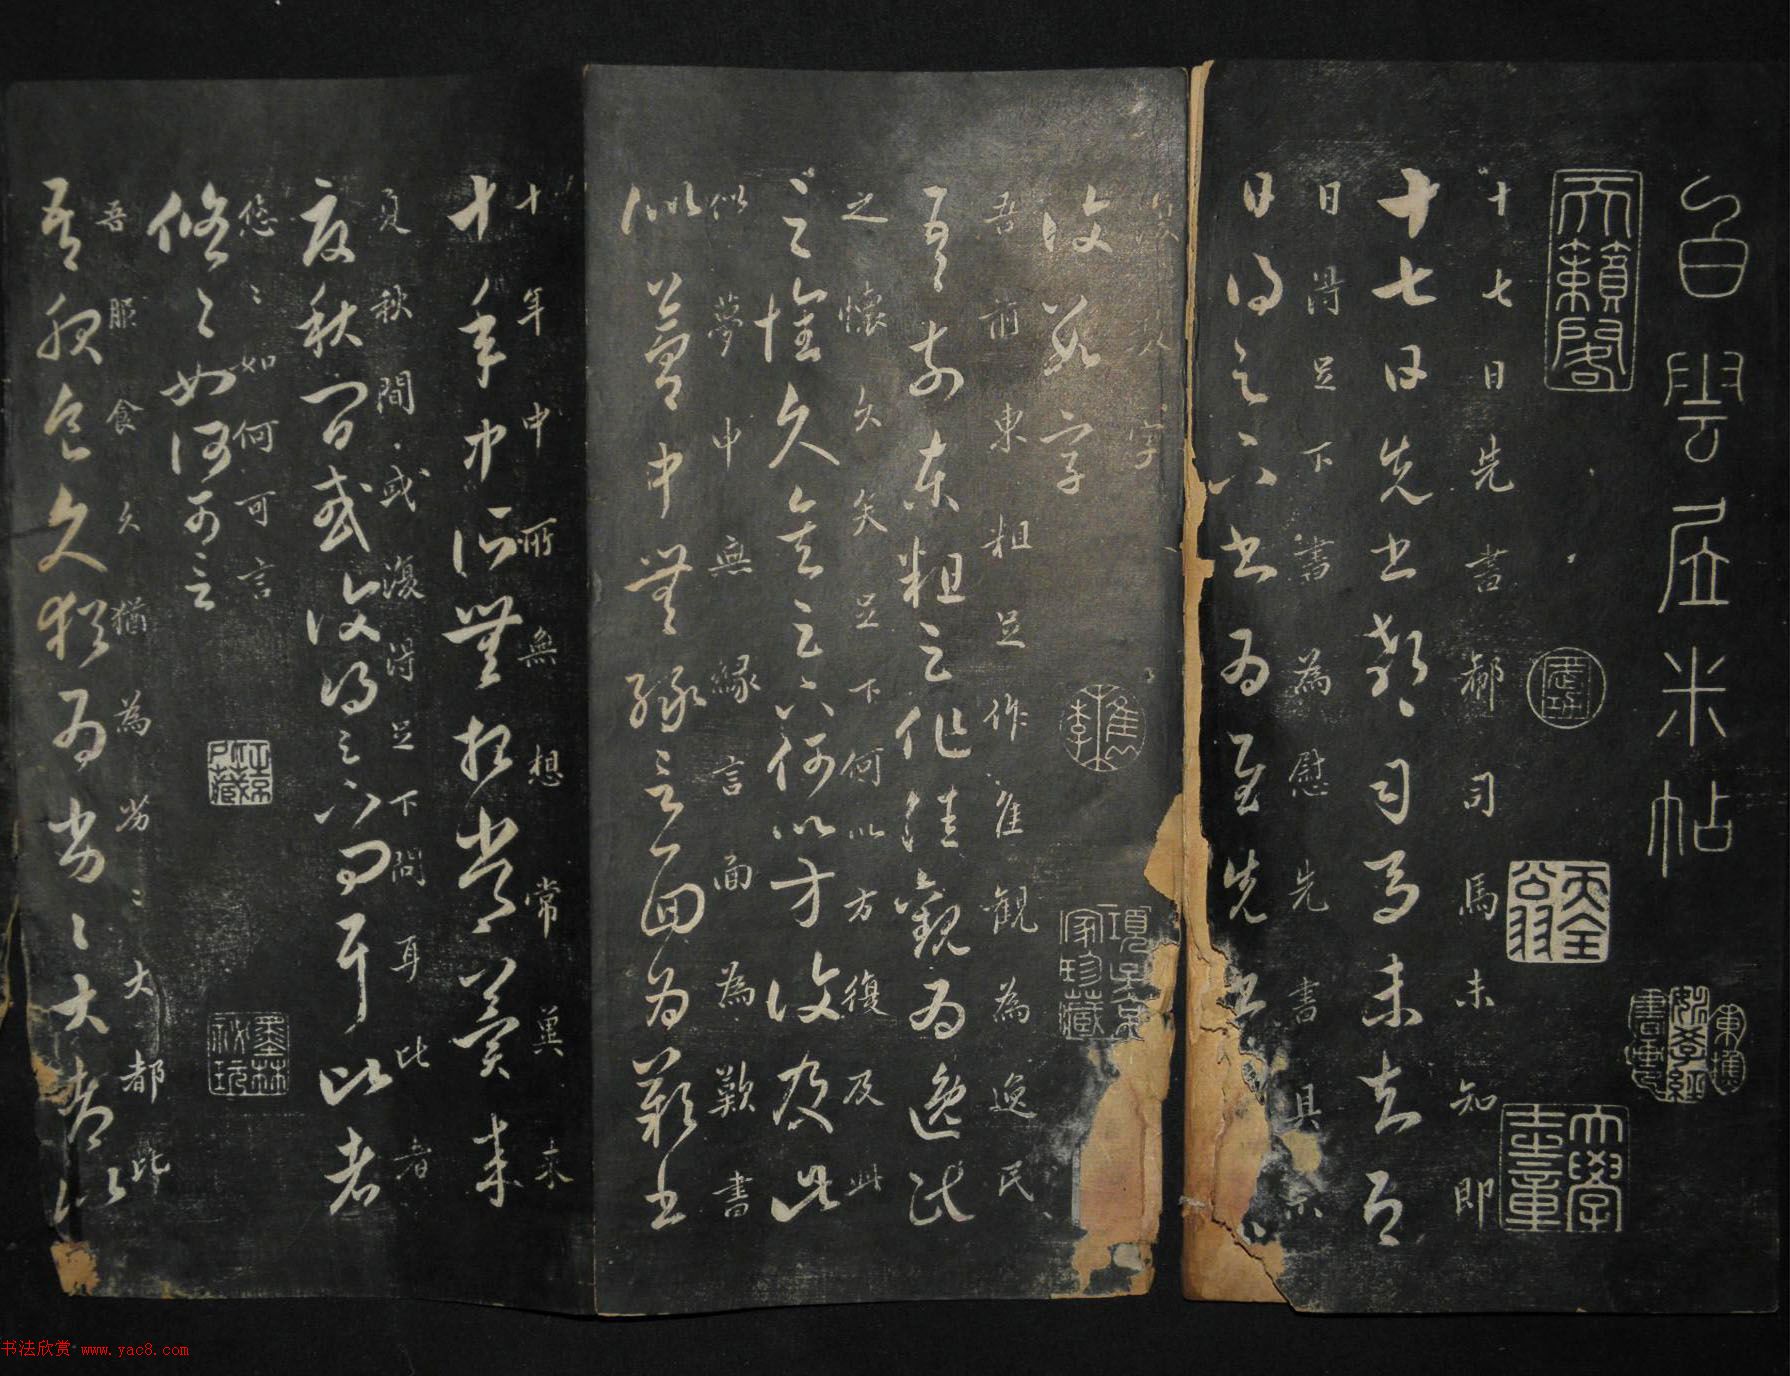 白雲居米帖
天籟閣
十七日先書郗司馬未知即
十七日先書郗司馬未去即
日得足下書為慰先書具示
日得足下書為慰先書
復數字
復數字
檇李
項子京家珍藏
吾前東粗足作佳觀為逸民
吾前東粗足作佳觀為逸民
之懷久矣足下何以方復及此
之懷久矣足下何以方復及此
似夢中無緣言面為歎書
似夢中無緣言面為歎書
十年中所無想常冀来
十年中所無想常冀来
夏秋間或復得足下問耳比者
夏秋間或復得足下問耳比者
悠〻如何可言
悠〻如何可言
墨林秘玩
吾服食久猶為劣〻大都比
吾服食久猶為劣〻大都比
书法欣赏 www.yac8.com